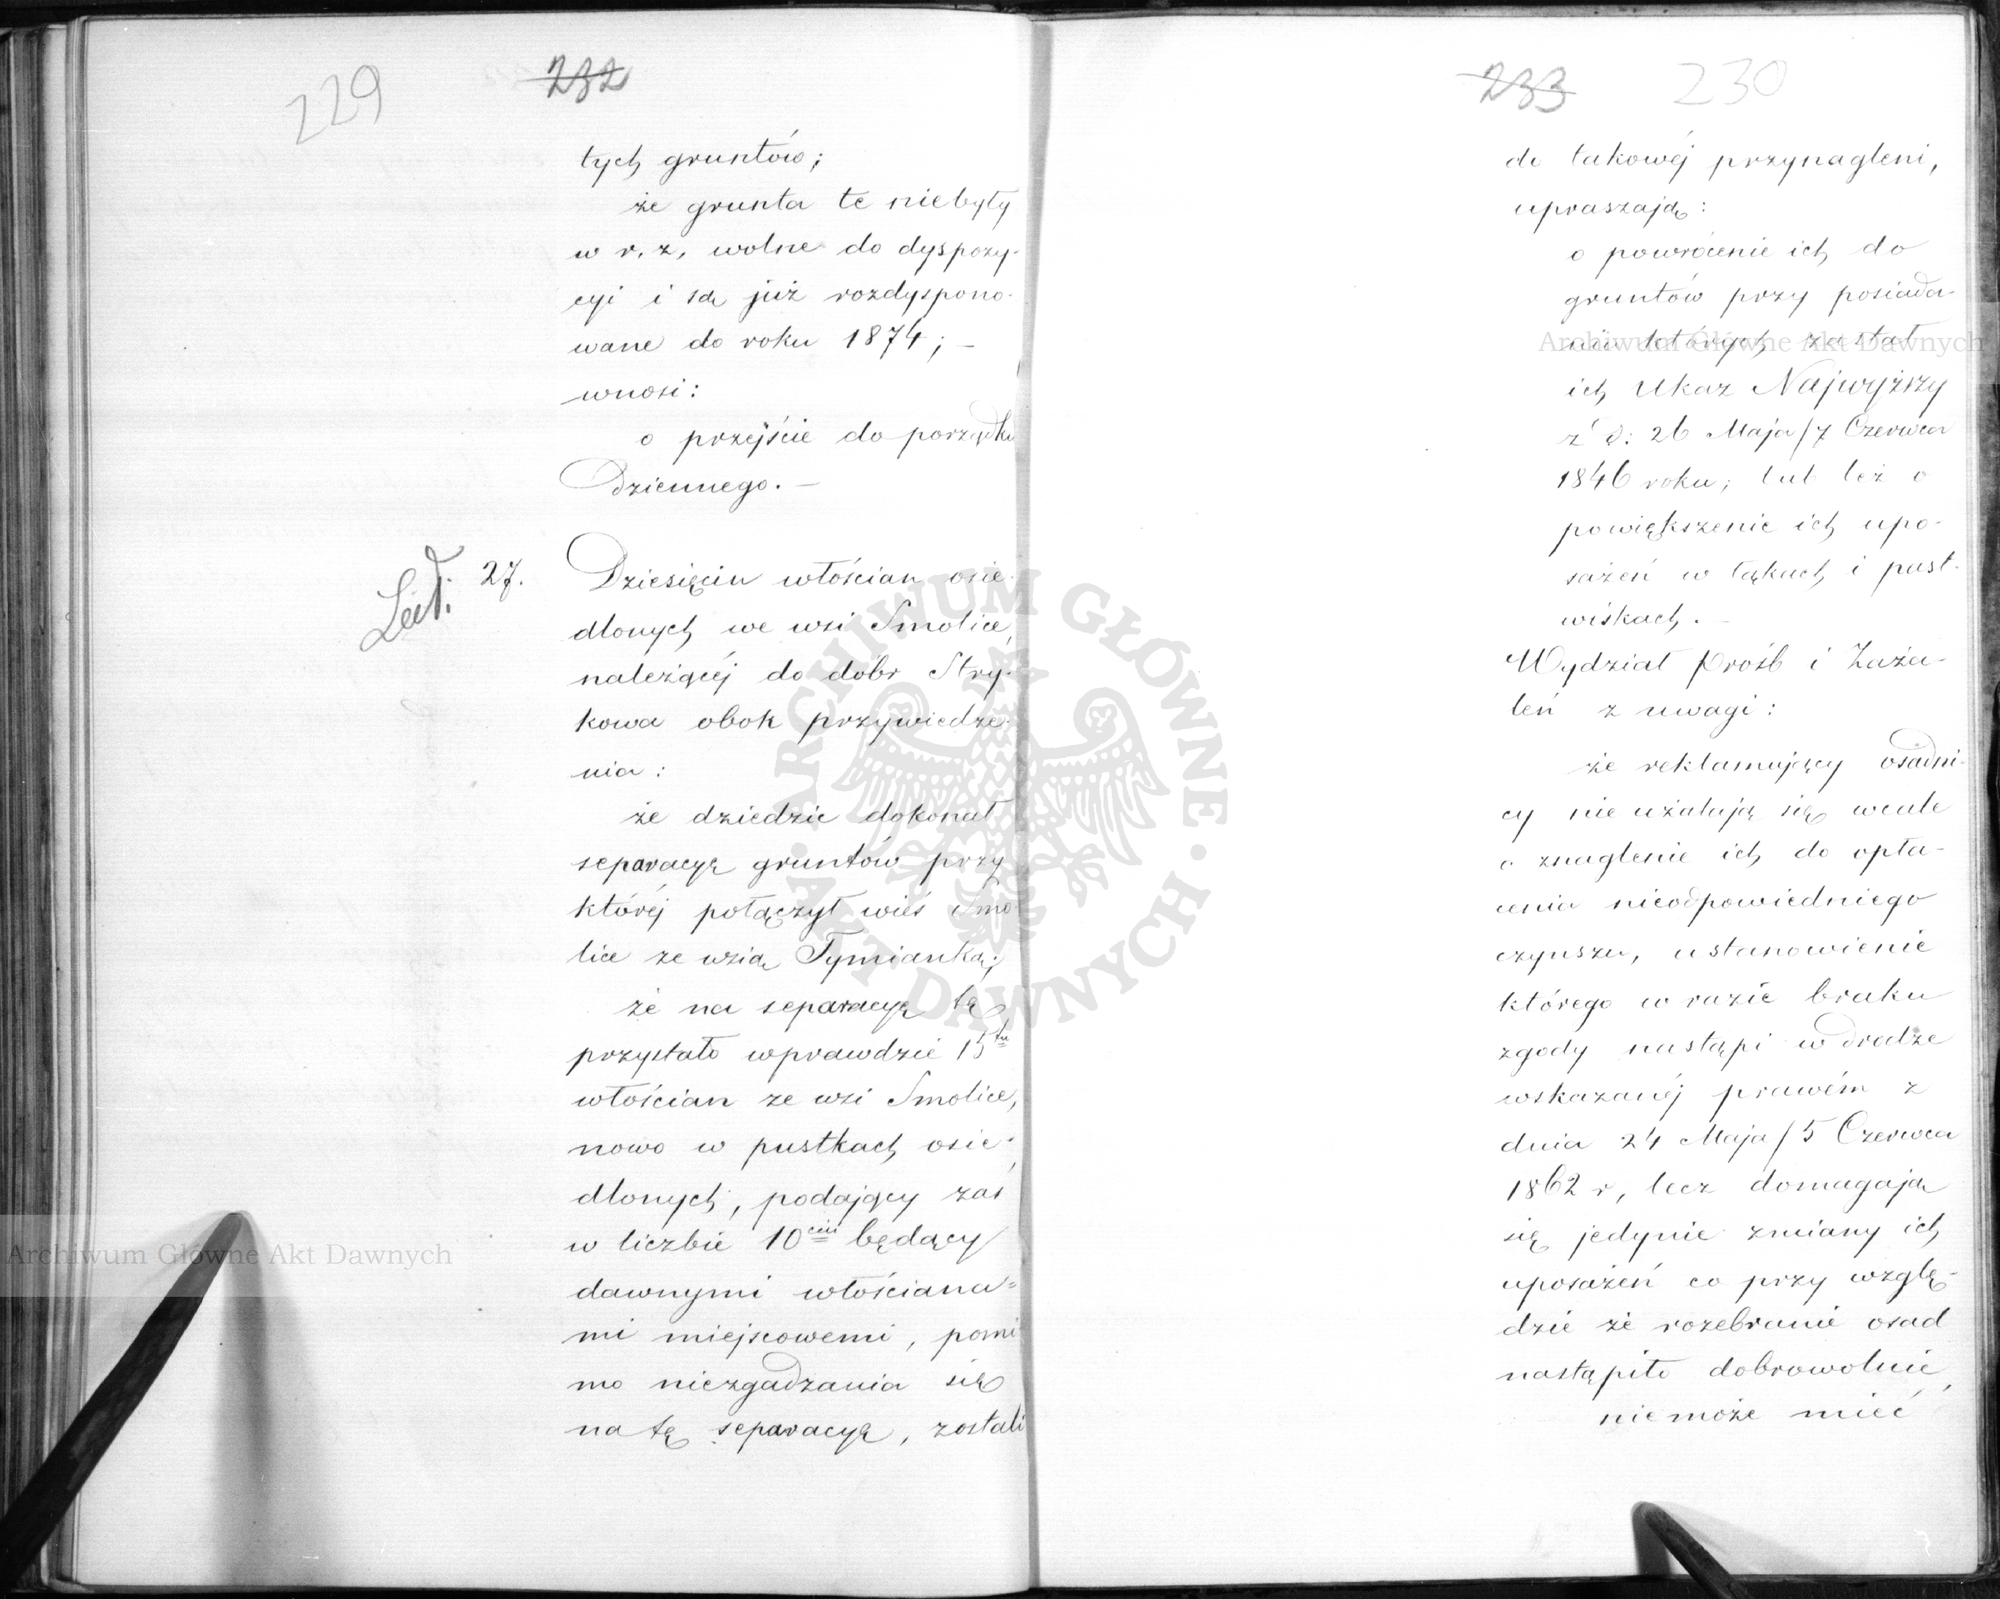 229 232
tych gruntów;
że grunta te niebyły
w r. z. wolne do dyspozy-
cyi i są już rozdyspono-
wane do roku 1874; –
wnosi:
o przejście do porządku
Dziennego. –
27. Dziesięciu włościan osie-
dlonych we wsi Smolice,
należącéj do dóbr Stry-
kowa obok przywiedze-
nia:
że dziedzic dokonał
separacyę gruntów przy
któréj połączył wieś Smo-
lice ze wsią Tymianką;
że na separacyę tę
przystało wprawdzie 15tu
włościan ze wsi Smolice,
nowo w pustkach osie-
dlonych, podający zaś
w liczbie 10ciu będący
dawnymi włościana=
mi miejscowemi, pomi
mo niezgadzania się
na tę separacyę, zostali
233 230
do takowéj przynagleni,
upraszają:
o powrócenie ich do
gruntów przy posiada-
niu których zastał
ich Ukaz Najwyższy
z d: 26 Maja/7 Czerwca
1846 roku; lub też o
powiększenie ich upo-
sażeń w łąkach i past-
wiskach. –
Wydział Próśb i Zaża-
leń z uwagi:
że reklamujący osadni-
cy nie użalają się wcale
o znaglenie ich do opła-
cania nieodpowiedniego
czynszu, ustanowienie
którego w razie braku
zgody nastąpi w drodze
wskazanéj prawém z
dnia 24 Maja/5 Czerwca
1862 r, lecz domagają
się jedynie zmiany ich
uposażeń co przy wzglę-
dzie że rozebranie osad
nastąpiło dobrowolnie,
niemoże mieć
Archiwum Główne Akt Dawnych
Archiwum Główne Akt Dawnych
ARCHIWUM GŁÓWNE AKT DAWNYCH